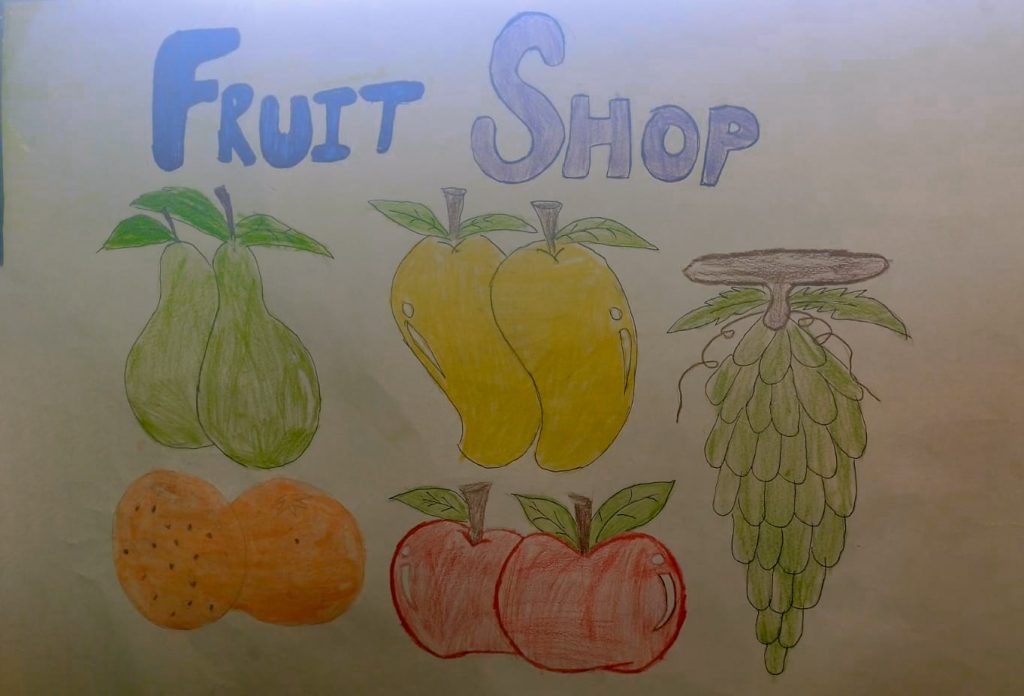 FRUIT SHOP